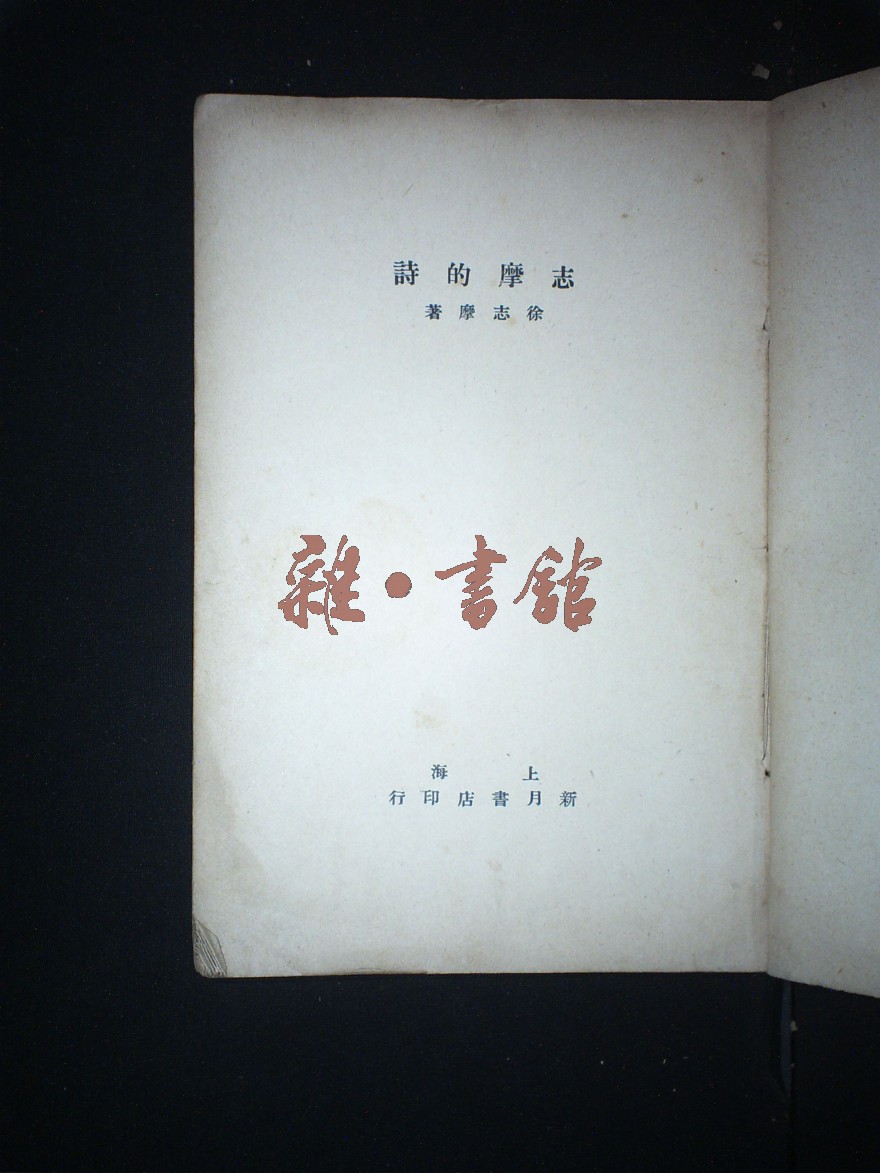 志摩的詩
徐志摩著
雜·書館
上海
新月書店印行